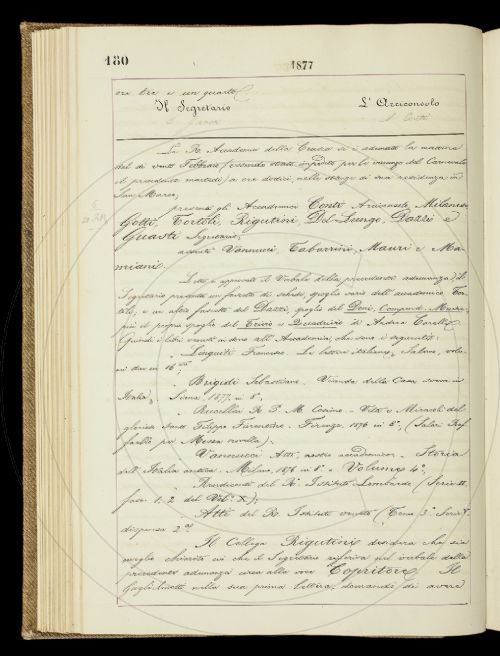 180
1877
ore tre e un quarto.
Il Segretario L'Arciconsolo
C. Guasti A. Conti
La R. Accademia della Crusca si è adunata la mattina
del dì venti Febbraio (essendo stata impedita per le vacanze del Carnevale
il precedente martedì) a ore dodici, nelle stanze di sua residenza in
San Marco,
presenti gli Accademici Conti Arciconsolo, Milanesi
Gotti, Tortoli, Rigutini, Del-Lungo, Dazzi e
Guasti Segretario;
assenti Vannucci, Tabarrini, Mauri e Ma-
miani.
Letto e approvato il Verbale della precedente adunanza, il
Segretario presenta un fascetto di schede, spoglio vario dell'accademico Tor-
toli; e un altro fascetto del Dazzi, spoglio del Doni,
più il proprio spoglio del Trivio e Quadrivio di Andrea
Quindi i libri venuti in dono all'Accademia, che sono i seguenti:
Francesco. Le lettere italiane, Salerno, volu-
mi due in 16.°
Brigidi Sebastiano. Vicende della Casa
Italia. Siena, 1877, in 8°,
Rucellai P. M. Cosimo. Vita e Miracoli del
glorioso Santo Filippo. Firenze, 1876 in 8°,
Vannucci Atto, nostro accademico. Storia
dell'Italia antica. Milano, 1876 in 8° Volume 4°,
Rendiconti del R. Istituto Lombardo (Serie II.
fasc. 1. 2 del Vol. X);
Atti del R. Istituto veneto (Tomo 3. Serie V.
dispensa 2.ª
Il Collega Rigutini desidera che sia
meglio chiarito ciò che il Segretario nel verbale della
precedente adunanza circa alla voce Copritore. Il
nella sua prima lettera, domandò di avere